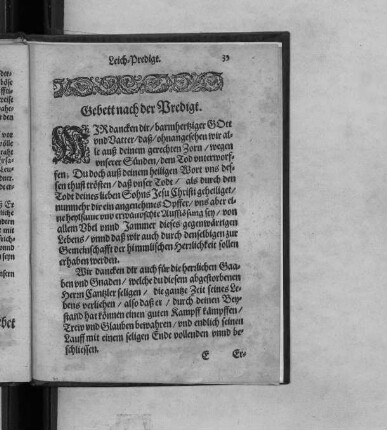 Leich-Predigt. 33
Gebett nach der Predigt.
WIR dancken dir / barmhertziger GOtt
und Vatter / daß / ohnangesehen wir al-
le auß deinem gerechten Zorn / wegen
unserer Sünden / dem Tod unterworf-
fen; Du doch auß deinem heiligen Wort uns des-
sen thust trösten / daß unser Todt / als durch den
Todt deines lieben Sohns Jesu Christi geheiliget /
nunmehr dir ein angenehmes Opffer / uns aber ei-
ne heylsame und erwündschte Aufflösung sey / von
allem Ubel unnd Jammer dieses gegenwärtigen
Lebens / unnd daß wir auch durch denselbigen zur
Gemeinschafft der himmlischen Herrlichkeit sollen
erhaben werden.
Wir dancken dir auch für die herrlichen Gaa-
ben und Gnaden / welche du diesem abgestorbenen
Herrn Cantzler seligen / die gantze Zeit seines Le-
bens verliehen / also daß er / durch deinen Bey-
stand hat können einen guten Kampff kämpffen /
Trew und Glauben bewahren / und endlich seinen
Lauff mit einem seligen Ende vollenden unnd be-
schliessen.
E Er-